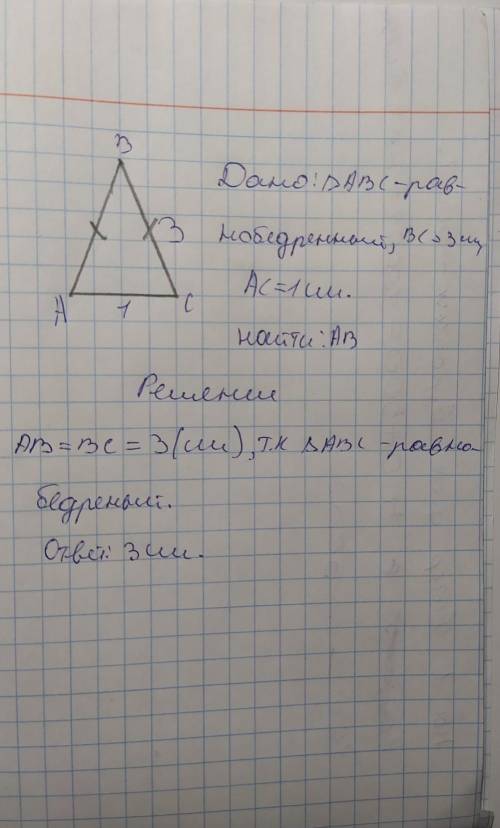 B
Дано: ΔABC-рав-
3
нобедренный, BC=3см,
AC=1см.
A 1 C
найти: AB
Решении
AB=BC=3(см), т.к ΔABC-равно-
бедреный.
Ответ: 3см.